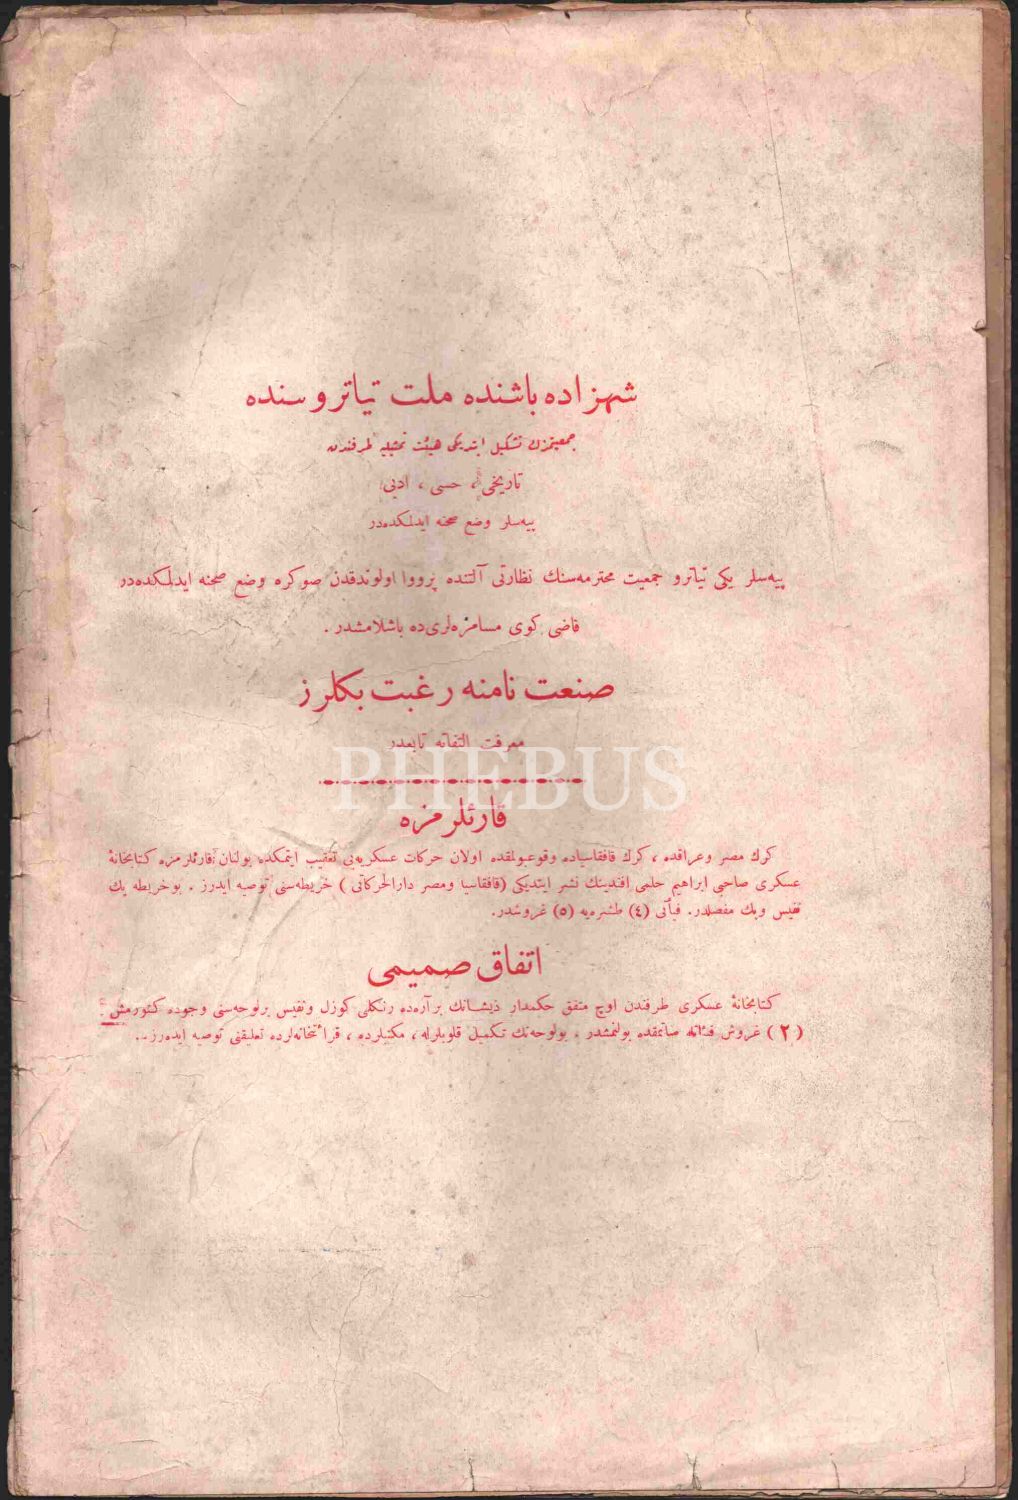 شهزاده باشنده ملت تیاتروسنده
جمعیتمزك تشکیل ایتدیکی هیئت تمثیلیه طرفندن
تاریخی ، حسی ، ادبی
پیه‌سلر وضع صحنه ایدلمکده‌در
پیه‌سلر یکی تیاترو جمعیت محترمه‌سنك نظارتی آلتنده پرووا اولوندقدن صوکره وضع صحنه ایدلمکده‌در
قاضی کوی مسامره‌لری‌ده باشلامشدر .
صنعت نامنه رغبت بکلرز
معرفت التفاته تابعدر
PHEBUS
قارئلرمزه
کرك مصر وعراقده ، کرك قافقاسیاده وقوعبولمقده اولان حرکات عسکریه‌یی تعقیب ایتمکده بولنان قارئلرمزه کتابخانهٔ
عسکری صاحبی ابراهیم حلمی افندینك نشر ایتدیکی (قافقاسیا ومصر دارالحرکاتی ) خریطه‌سنی توصیه ایدرز . بوخریطه پك
نفیس وپك مفصلدر. فیأتی (٤) طشره‌یه (٥) غروشدر.
اتفاق صمیمی
کتابخانهٔ عسکری طرفندن اوچ متفق حکمدار ذیشانك برآره‌ده رنکلی کوزل ونفیس برلوحه‌سنی وجوده کتورمش
(٢) غروش فیئاته صاتمقده بولنمشدر . بولوحه‌نك تکمیل قلوبلرله ، مکتبلرده ، قرائتخانه‌لرده تعلیقنی توصیه ایده‌رز .